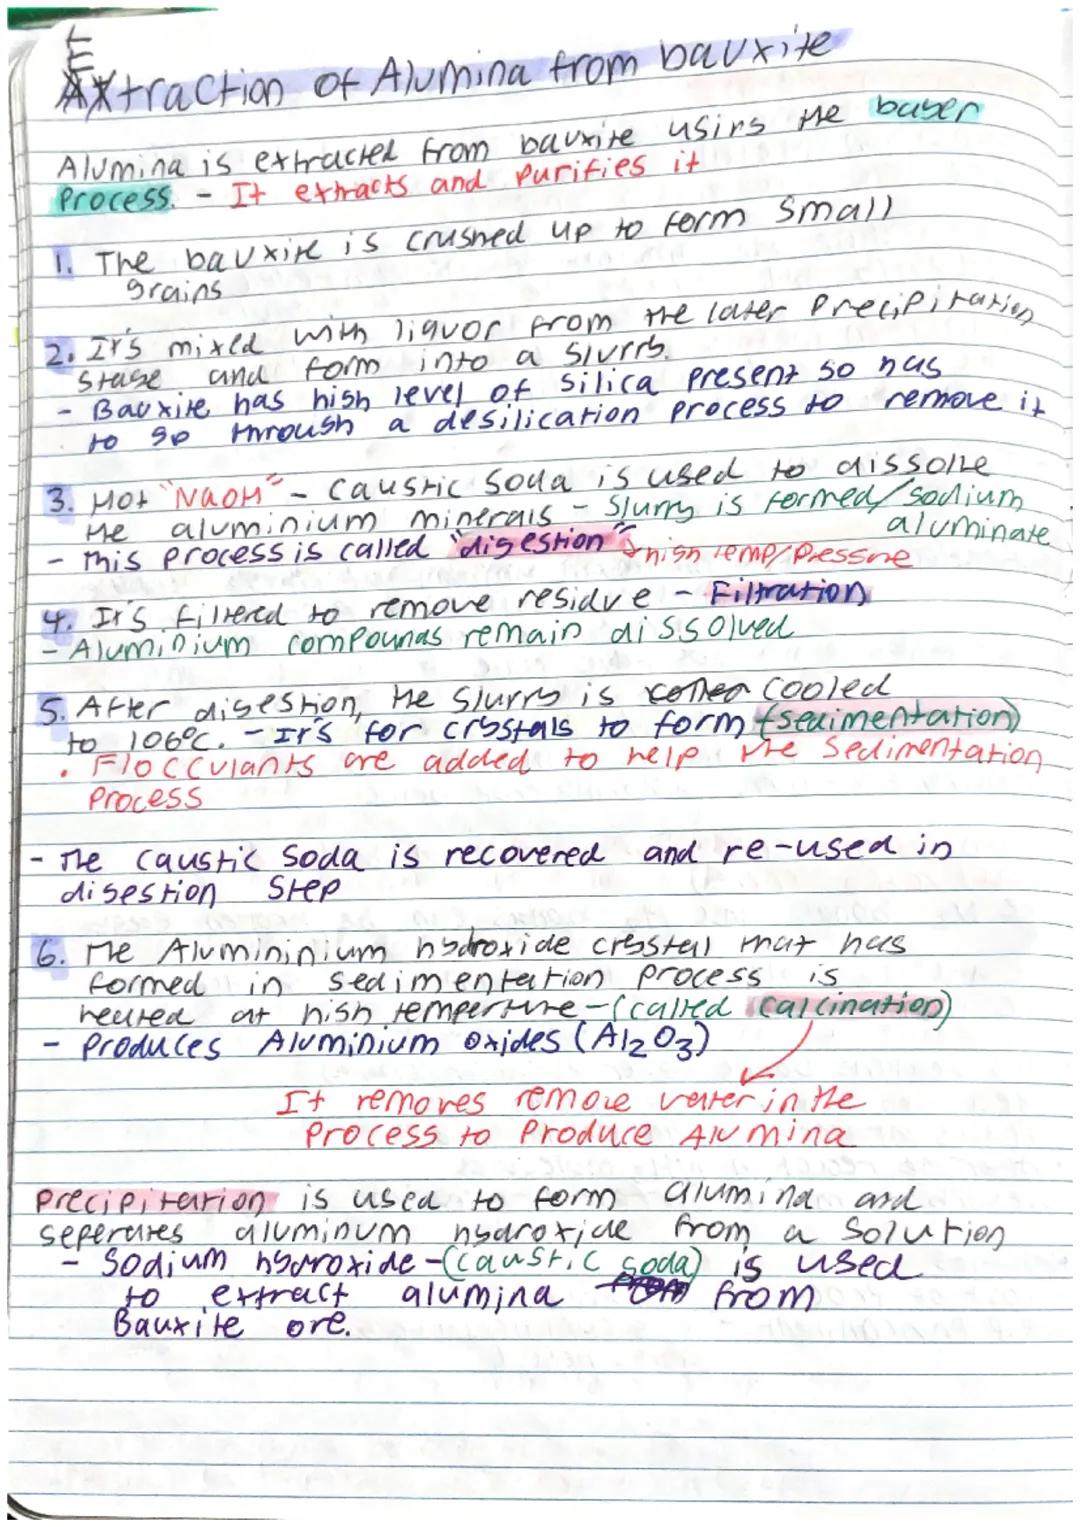 Extraction of Alumina from bauxite
Alumina is extracted from bauxite using the bayer
Process. - It extracts and Purifies it
1. The bauxite is crushed up to form small
grains
2. It's mixed with liquor from the later Precipitation
stage and form into a slurry.
- Bauxite has high level of silica present so has
to go through a desilication process to remove it
3. Hot "NaOH" - caustic soda is used to dissolve
the aluminium minerals - slurry is formed/sodium
aluminate
- this process is called "digestion" high temp/Pressure
4. It's filtered to remove residue - Filtration
- Aluminium compounds remain dissolved
5. After digestion, the slurry is cooled
to 106°C. - It's for crystals to form (sedimentation)
• Flocculants are added to help the Sedimentation
Process
- The caustic soda is recovered and re-used in
digestion step
6. The Alumininium hydroxide crystal that has
formed in sedimentation process is
heated at high temperture - (called calcination)
- Produces Aluminium oxides (Al2O3)
It removes remove water in the
Process to Produce Alumina
Precipitation is used to form alumina and
seperates aluminum hydroxide from a solution
- Sodium hydroxide - (caustic soda) is used
to extract alumina from
Bauxite ore.